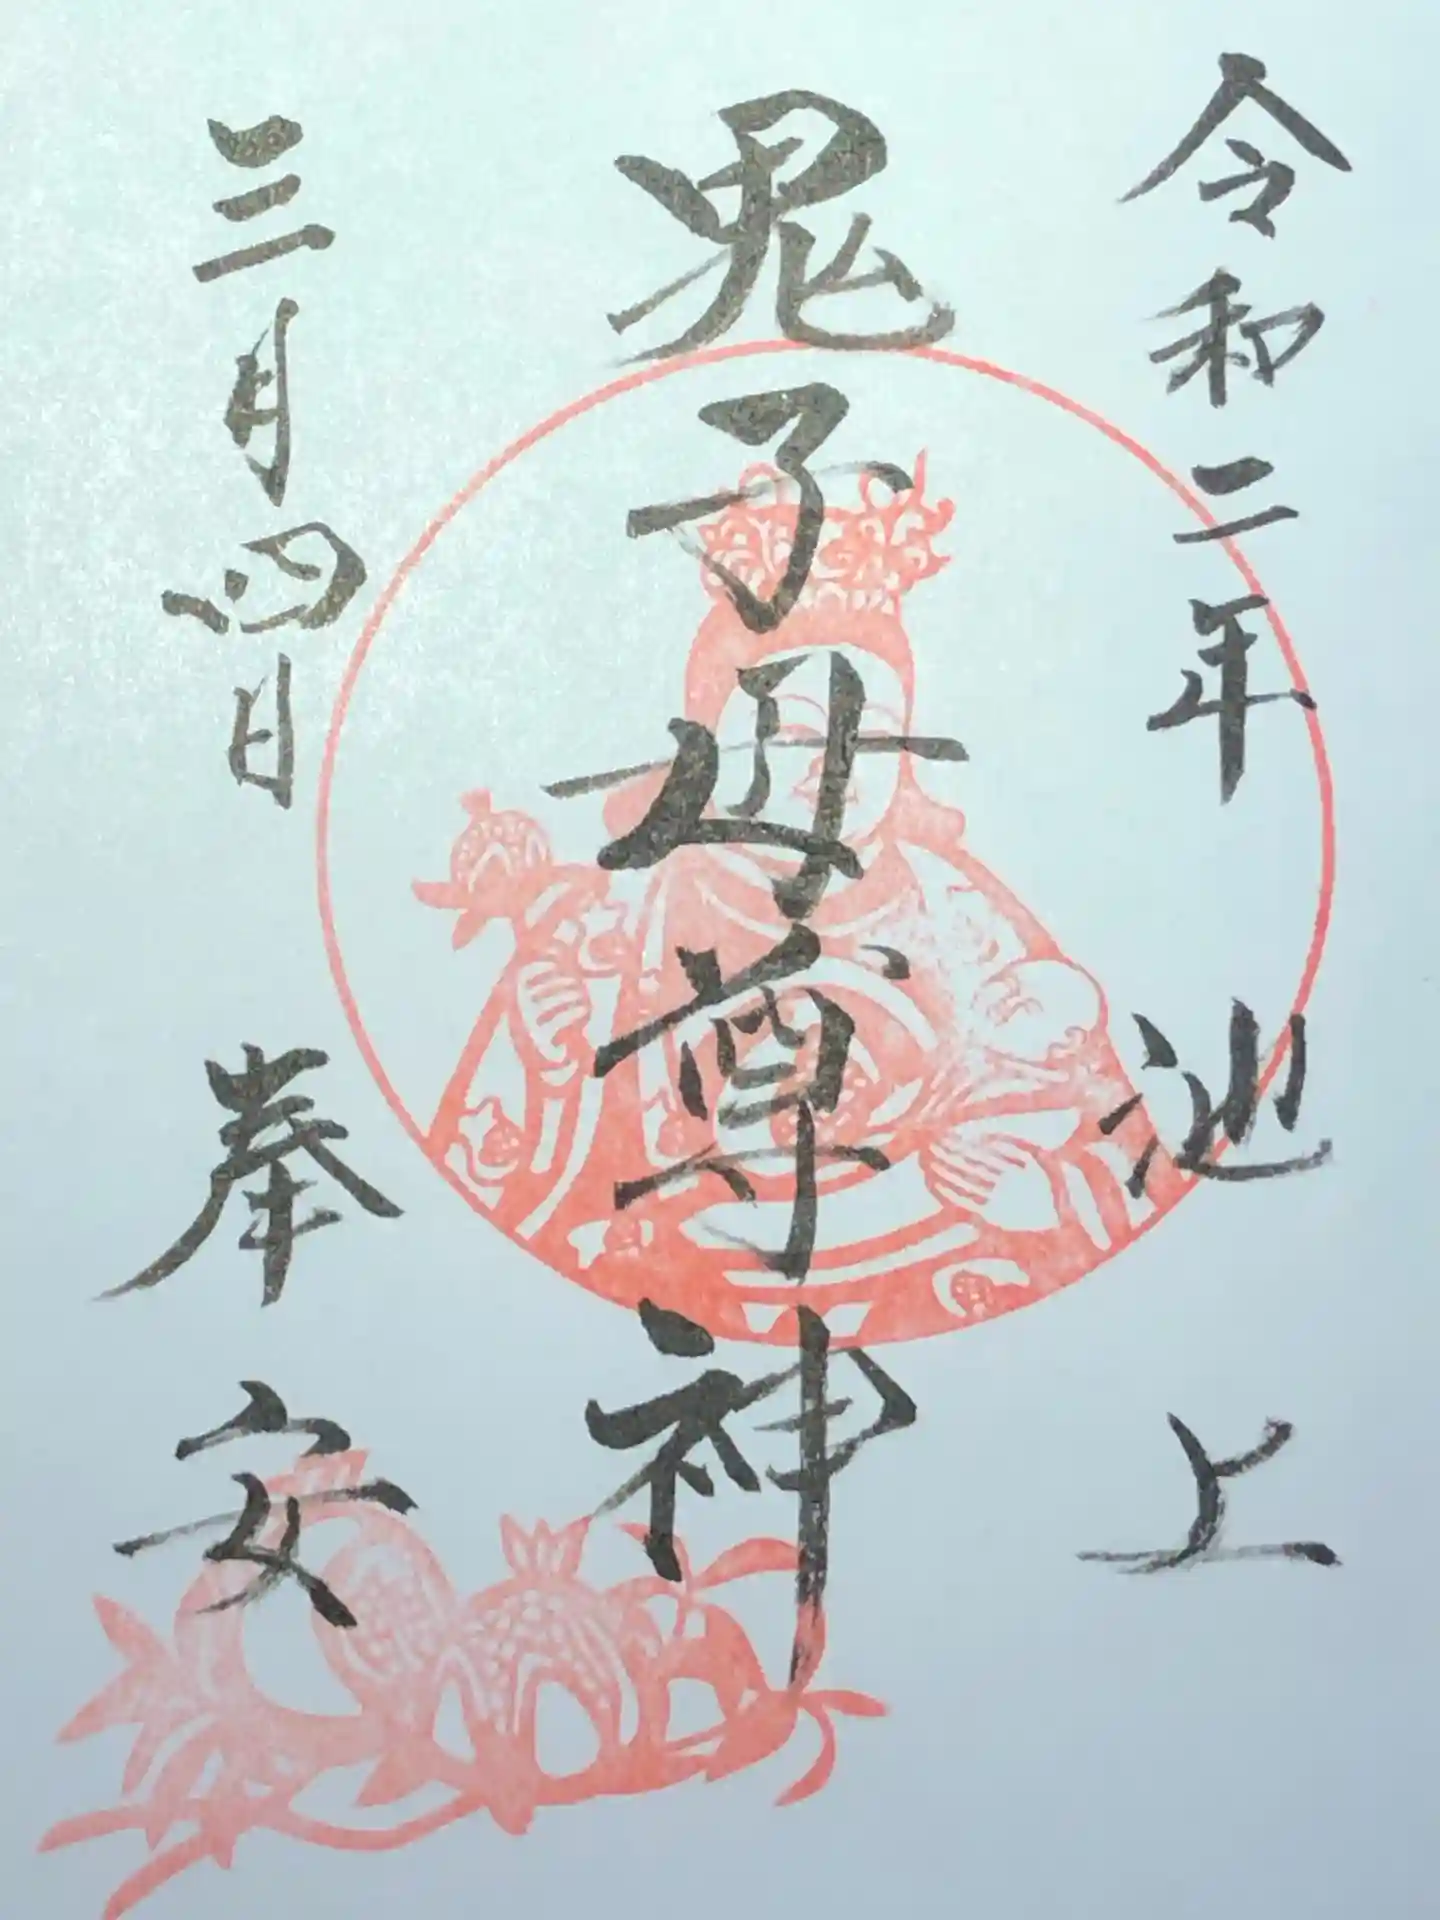 令和二年 池上
鬼子母尊神
三月四日 奉安